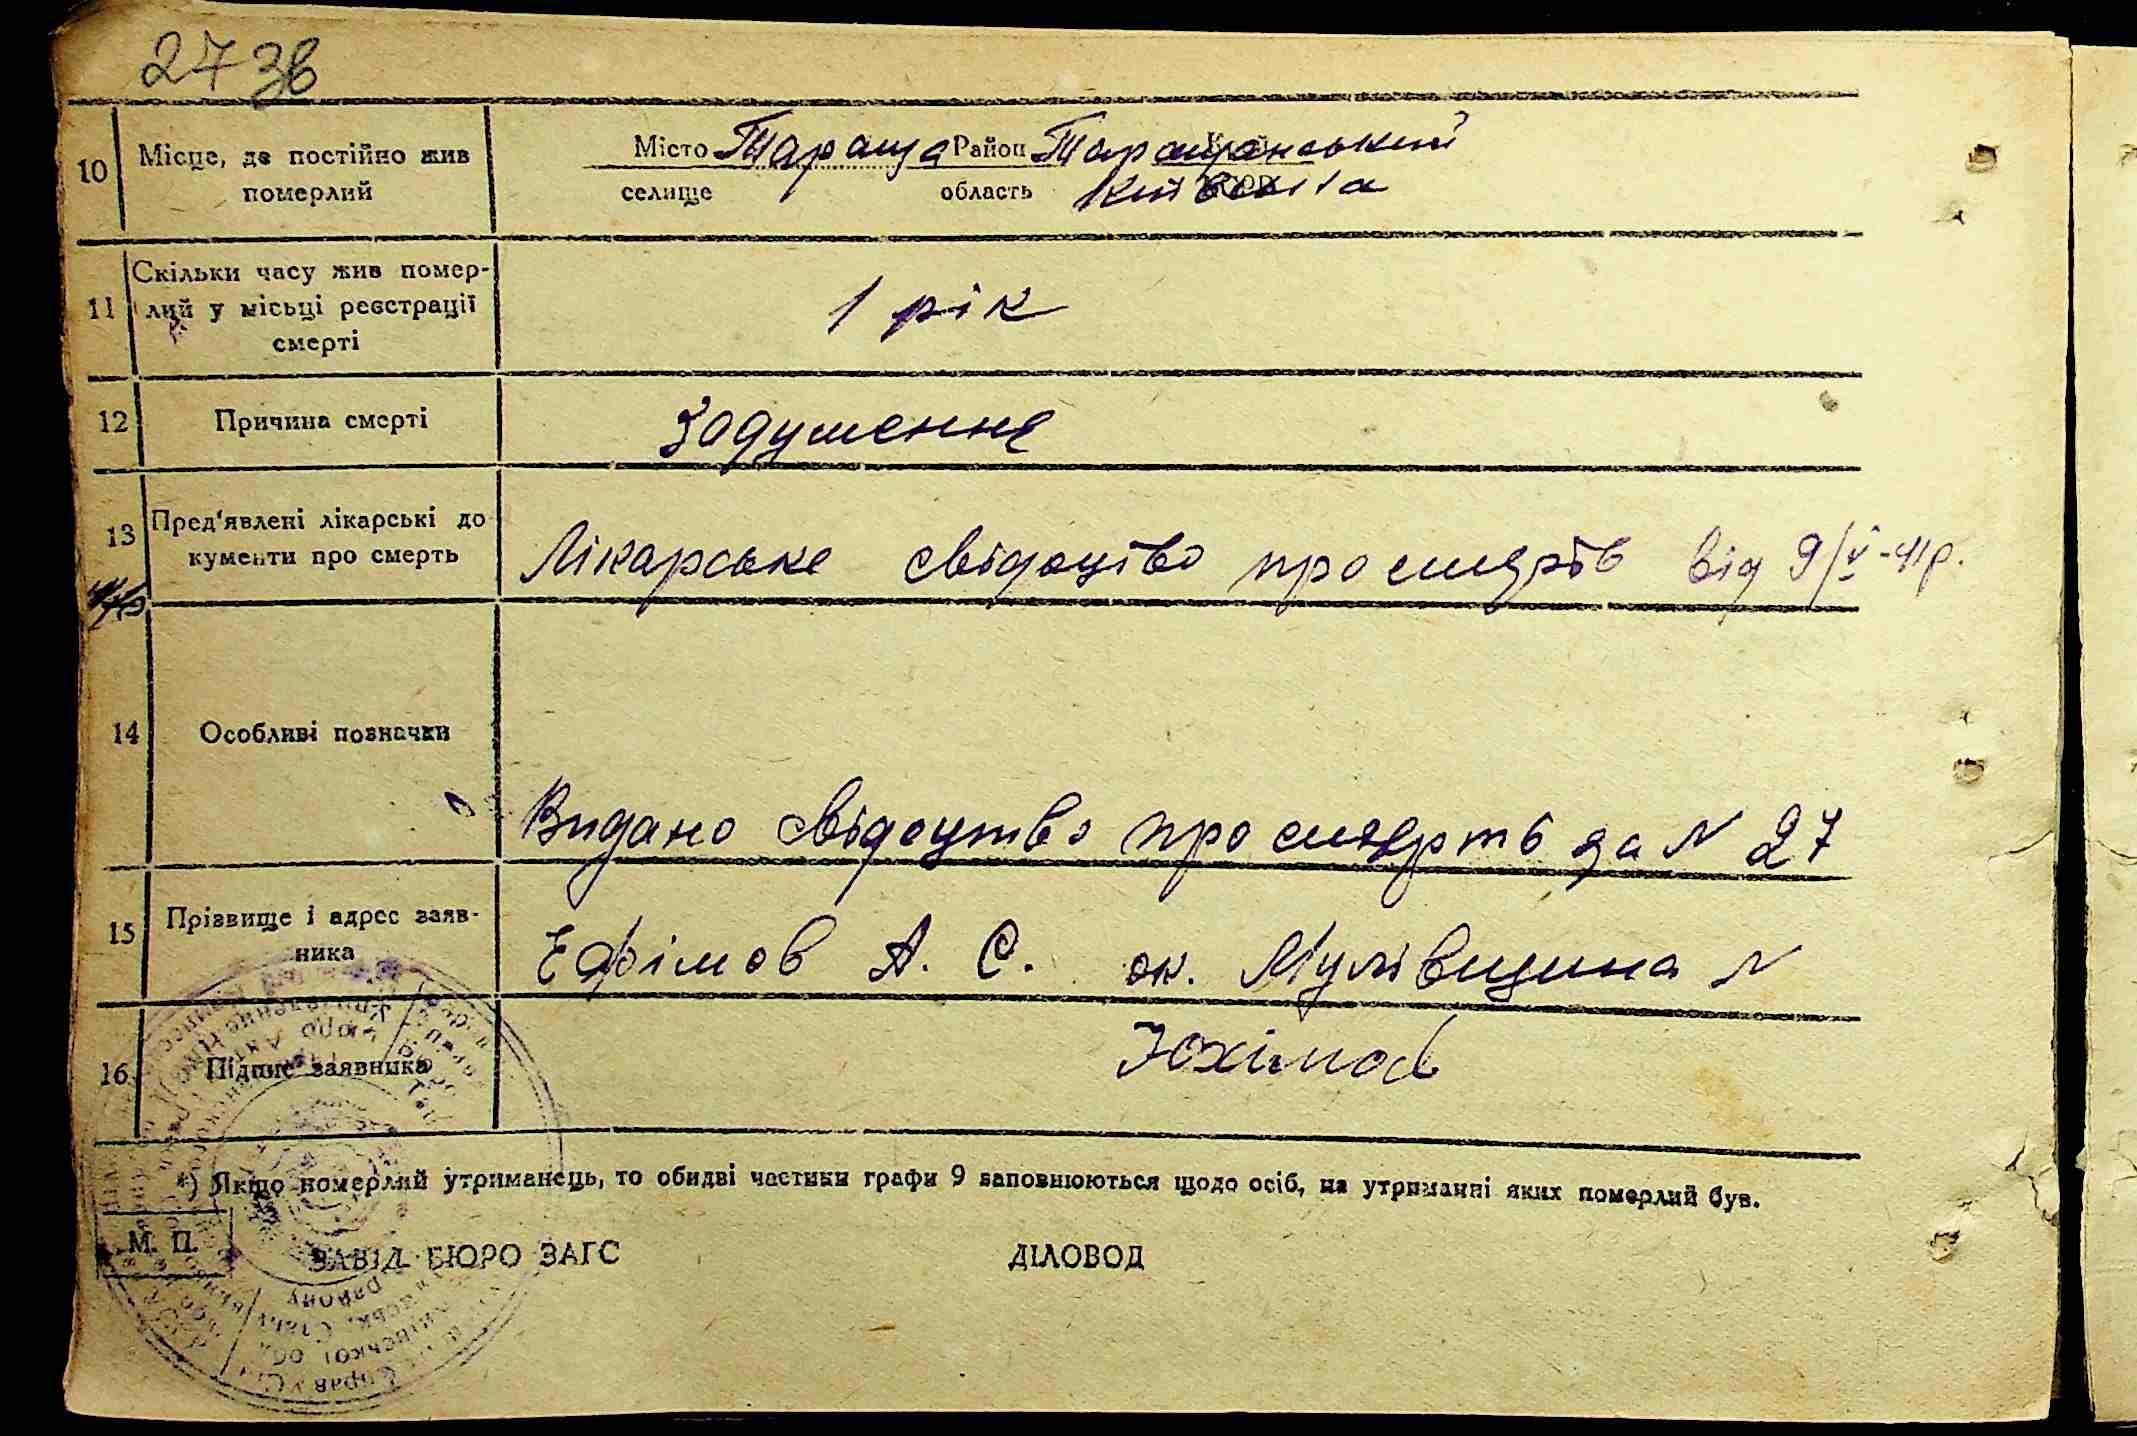 27 зв
10 Місце, де постійно жив померлий
Місто Тараща Район Таращанський
селище область Київська
11 Скільки часу жив помер-
лий у місьці реєстрації
смерті
1 рік
12 Причина смерті
Задушення
13 Пред'явлені лікарські до
кументи про смерть
Лікарське свідоцтво про смерть від 9/V-41р.
14 Особливі позначки
Видано свідоцтво про смерть за N 27
15 Прізвище і адрес заяв-
ника
Ефімов А. С. ок. Мулівщина N
16 Підпис заявника
Юхімов
*) Якщо померлий утриманець, то обидві частини графи 9 заповнюються щодо осіб, на утриманні яких померлий був.
М. П.
ЗАВІД. БЮРО ЗАГС ДІЛОВОД